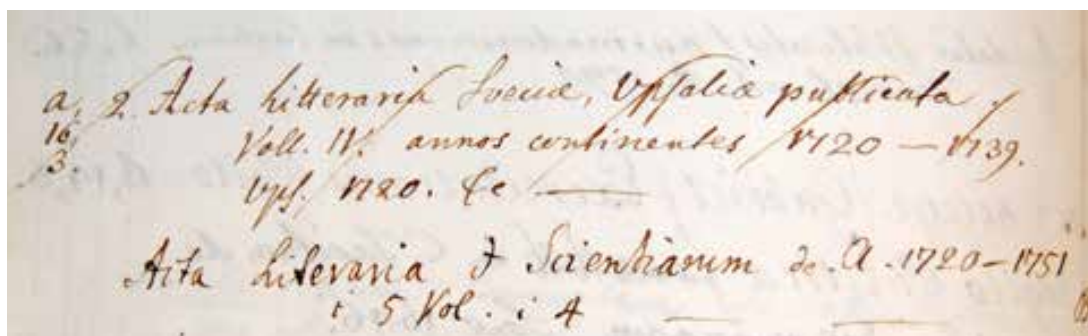 a, 2. Acta Litteraria Sveciæ, Upsaliæ publicata.
16, Voll. IV. annos continentes 1720 — 1739.
3. Ups. 1720. &c —
Acta Literaria & Scientiarum de A. 1720–1751
i 5 Vol. i 4 — —